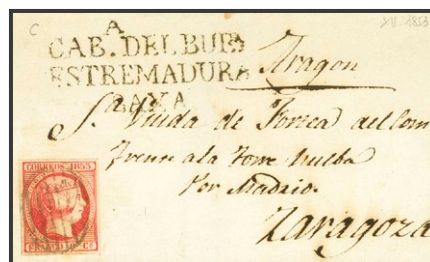 C
XII 1853
A
CAB. DEL BUEY
ESTREMADURA
BAXA
Aragon
Sª. Viuda de del Com
Frente a la Torre nueba
Por Madrid.
Zaragoza
CORREOS 1853
FRANCO 6 Cs